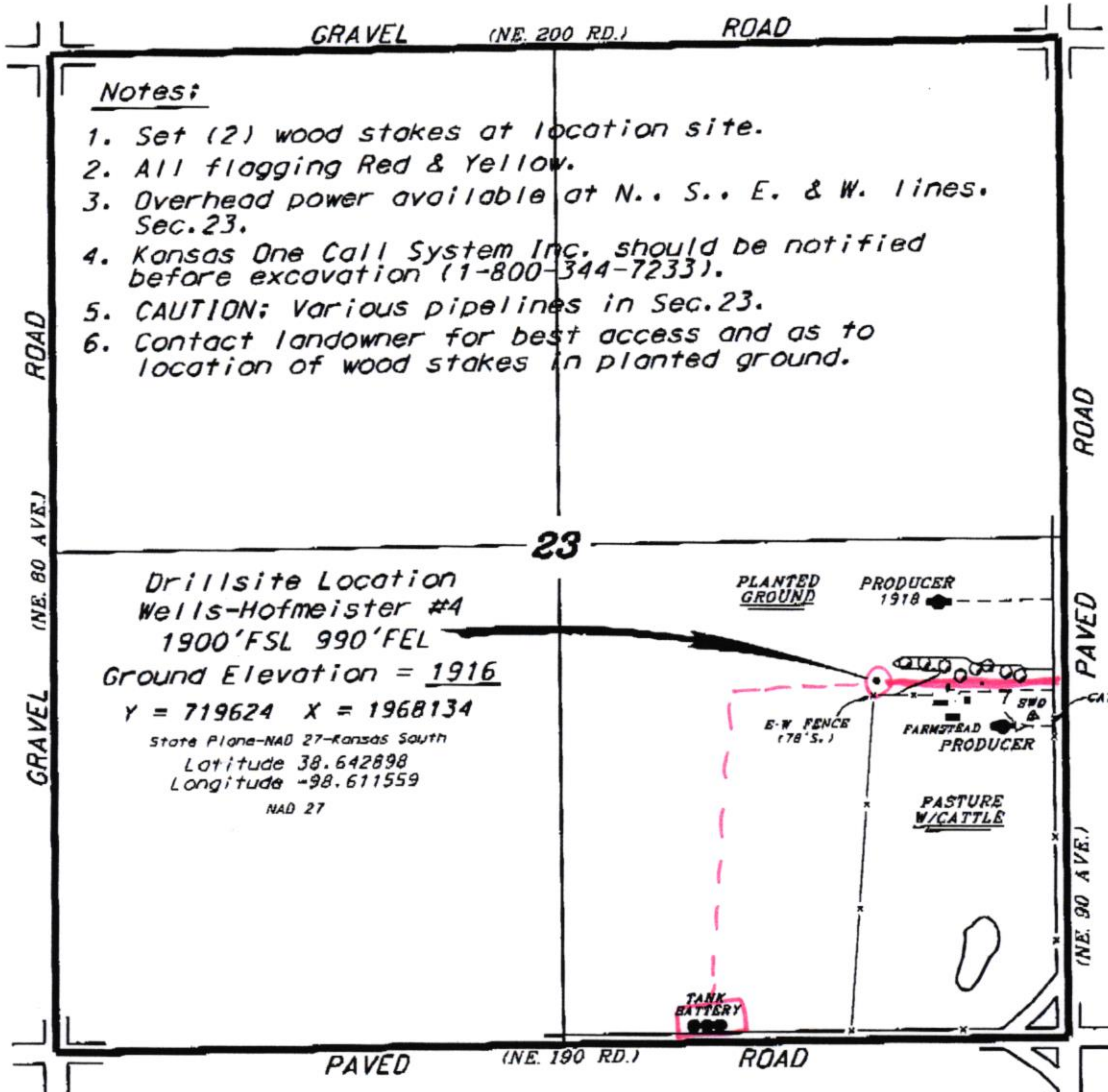 GRAVEL (NE. 200 RD.) ROAD
Notes:
1. Set (2) wood stakes at location site.
2. All flagging Red & Yellow.
3. Overhead power available at N., S., E. & W. lines.
Sec.23.
4. Kansas One Call System Inc. should be notified
before excavation (1-800-344-7233).
5. CAUTION: Various pipelines in Sec.23.
6. Contact landowner for best access and as to
location of wood stakes in planted ground.
GRAVEL (NE. 80 AVE.) ROAD
23
Drillsite Location
Wells-Hofmeister #4
1900'FSL 990'FEL
Ground Elevation = 1916
Y = 719624 X = 1968134
State Plane-NAD 27-Kansas South
Latitude 38.642898
Longitude -98.611559
NAD 27
PLANTED
GROUND
PRODUCER
1918
E-W FENCE
(78'S.)
SWD
FARMSTEAD
PRODUCER
PASTURE
W/CATTLE
TANK
BATTERY
(NE. 90 AVE.) PAVED ROAD
PAVED (NE. 190 RD.) ROAD